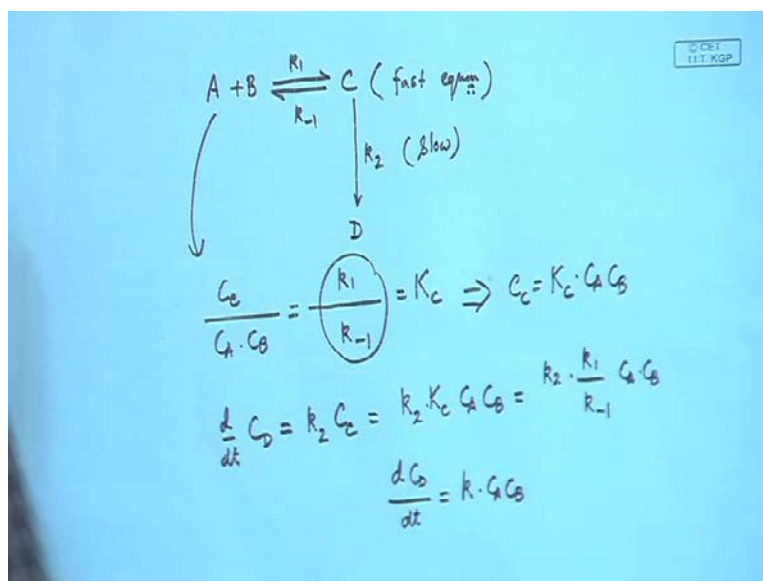 © CET
I.I.T. KGP
A + B ⇌ C (fast eqm)
k₁
k₋₁
k₂ (slow)
D
C_C / C_A · C_B = k₁ / k₋₁ = K_C ⇒ C_C = K_C · C_A C_B
d/dt C_D = k₂ C_C = k₂ · K_C C_A C_B = k₂ · k₁ / k₋₁ C_A · C_B
dC_D / dt = k · C_A C_B